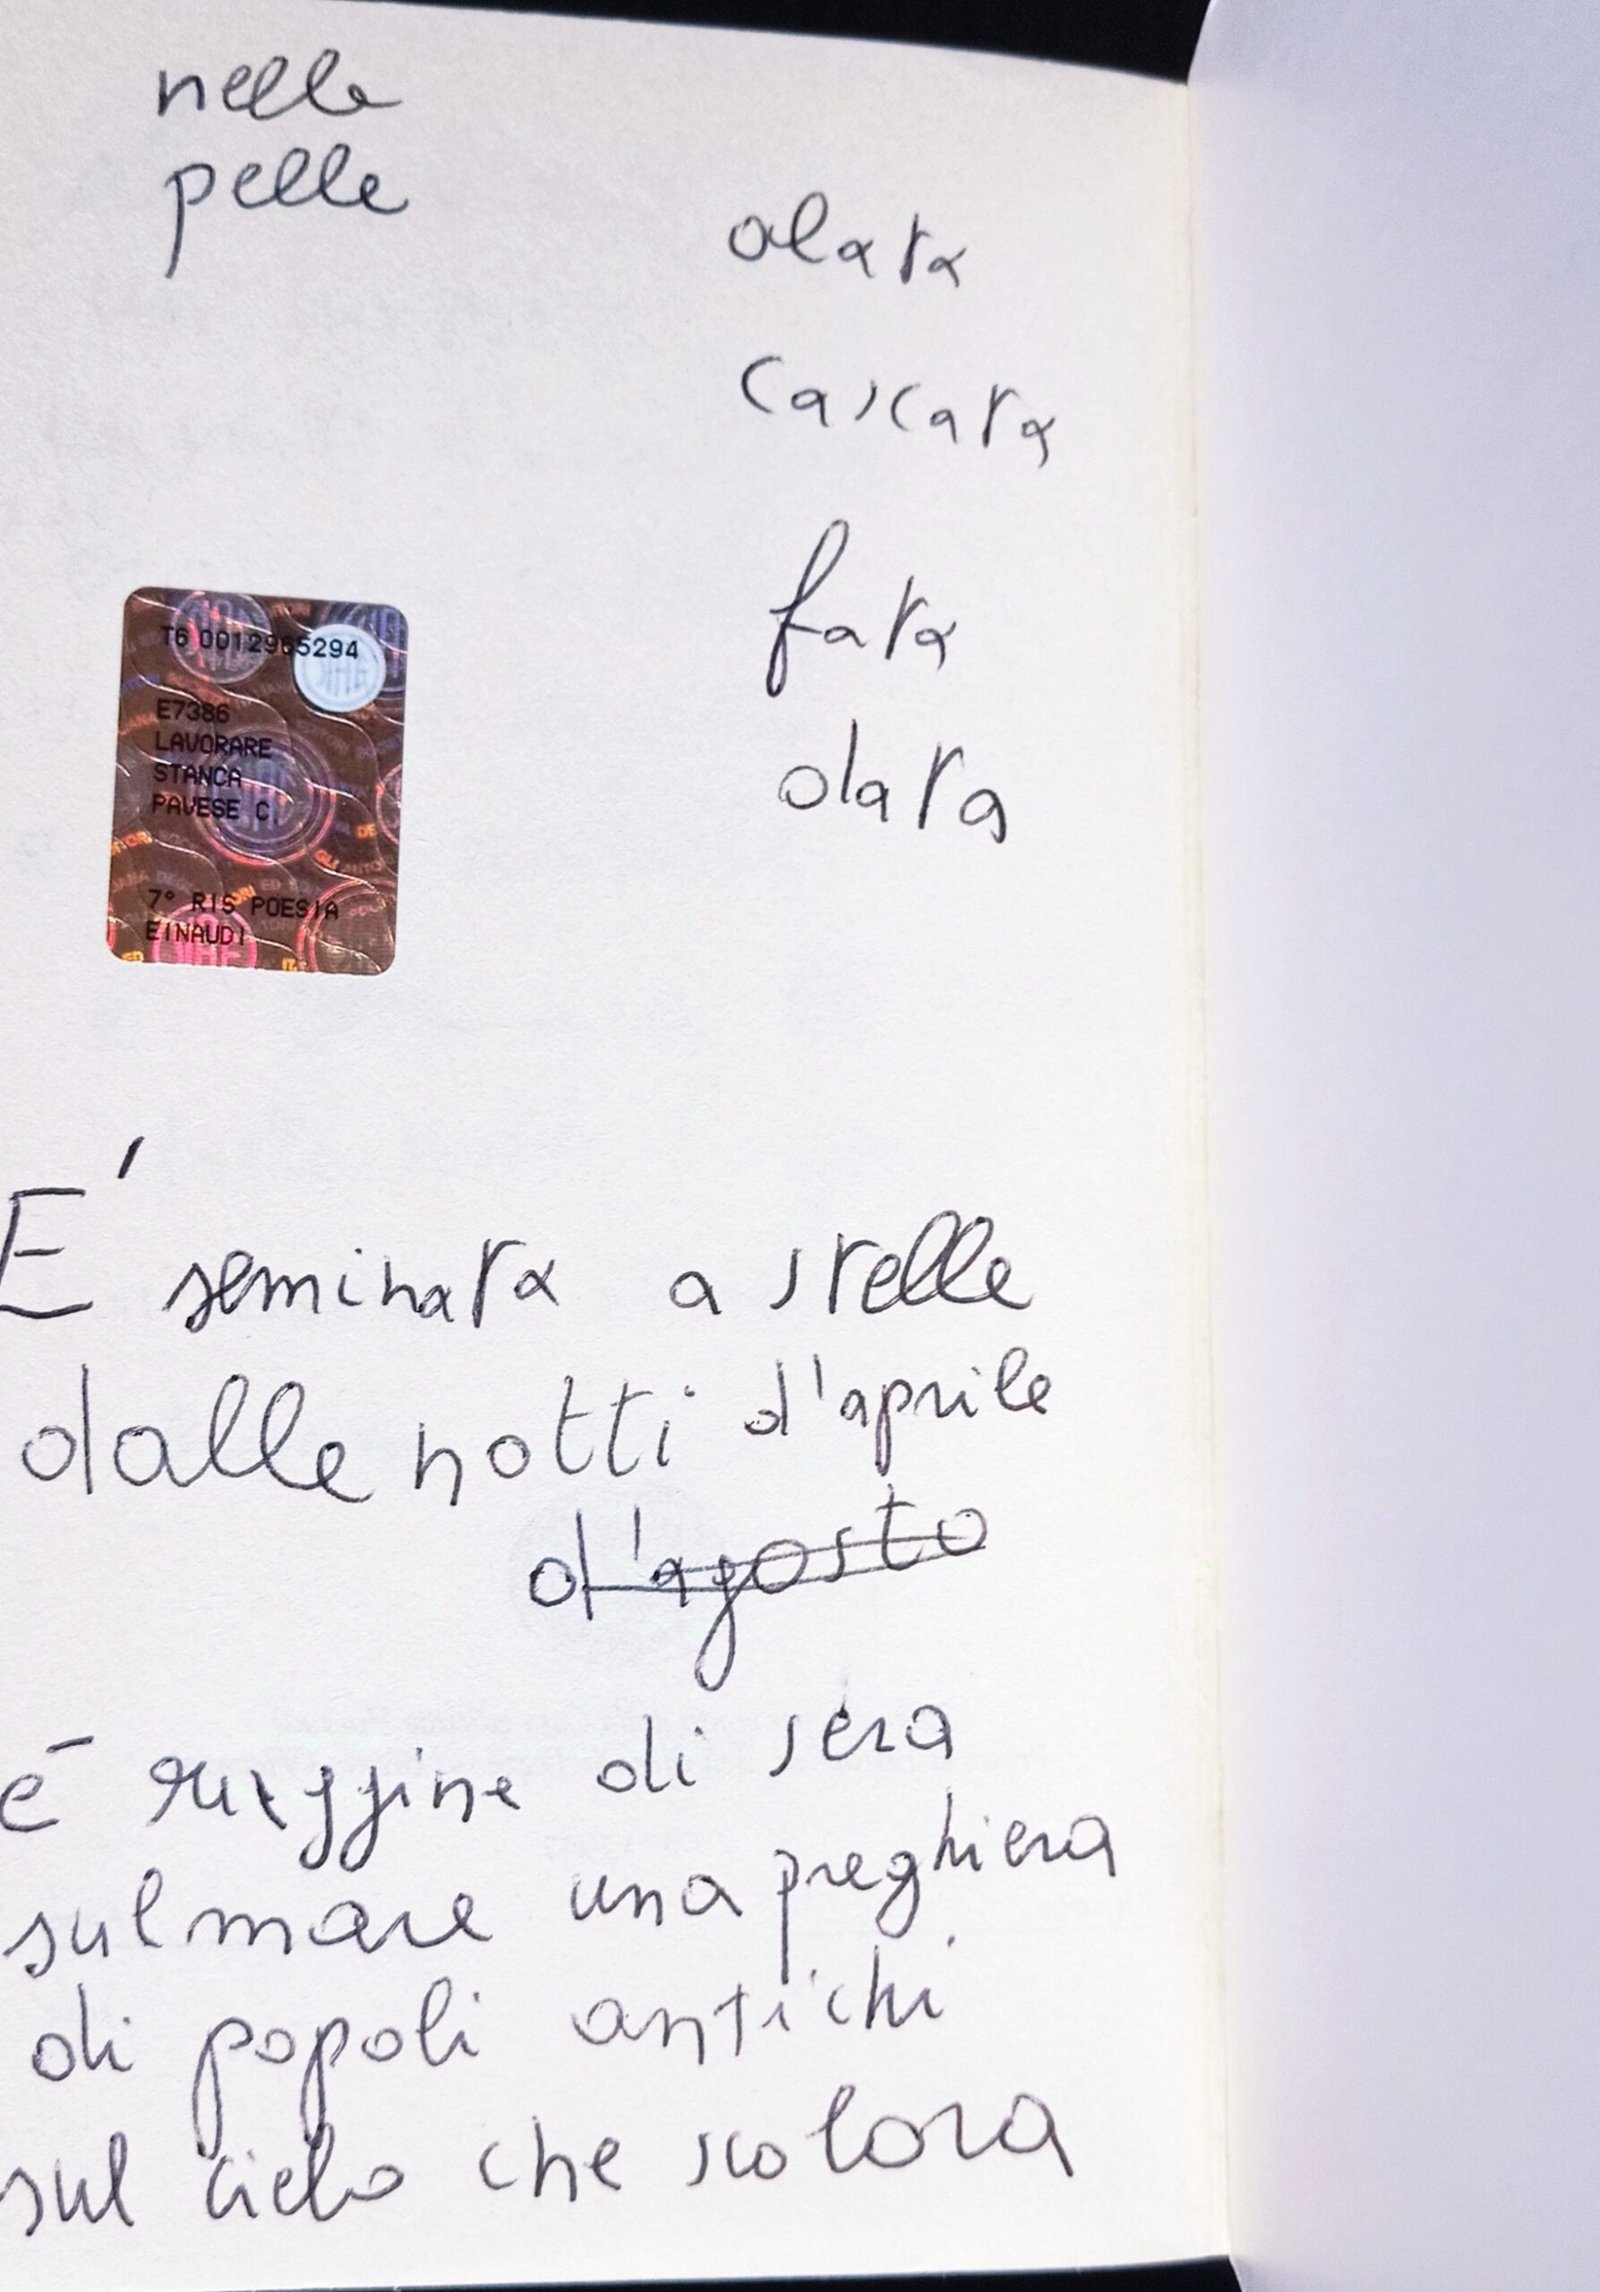 nelle
pelle
alata
cascata
fata
data
T6 0012965294
E7386
LAVORARE
STANCA
PAVESE C.
7° RIS POESIA
EINAUDI
E' seminata a stelle
dalle notti d'aprile
d'agosto
è ruggine di sera
sul mare una preghiera
di popoli antichi
sul cielo che scolora